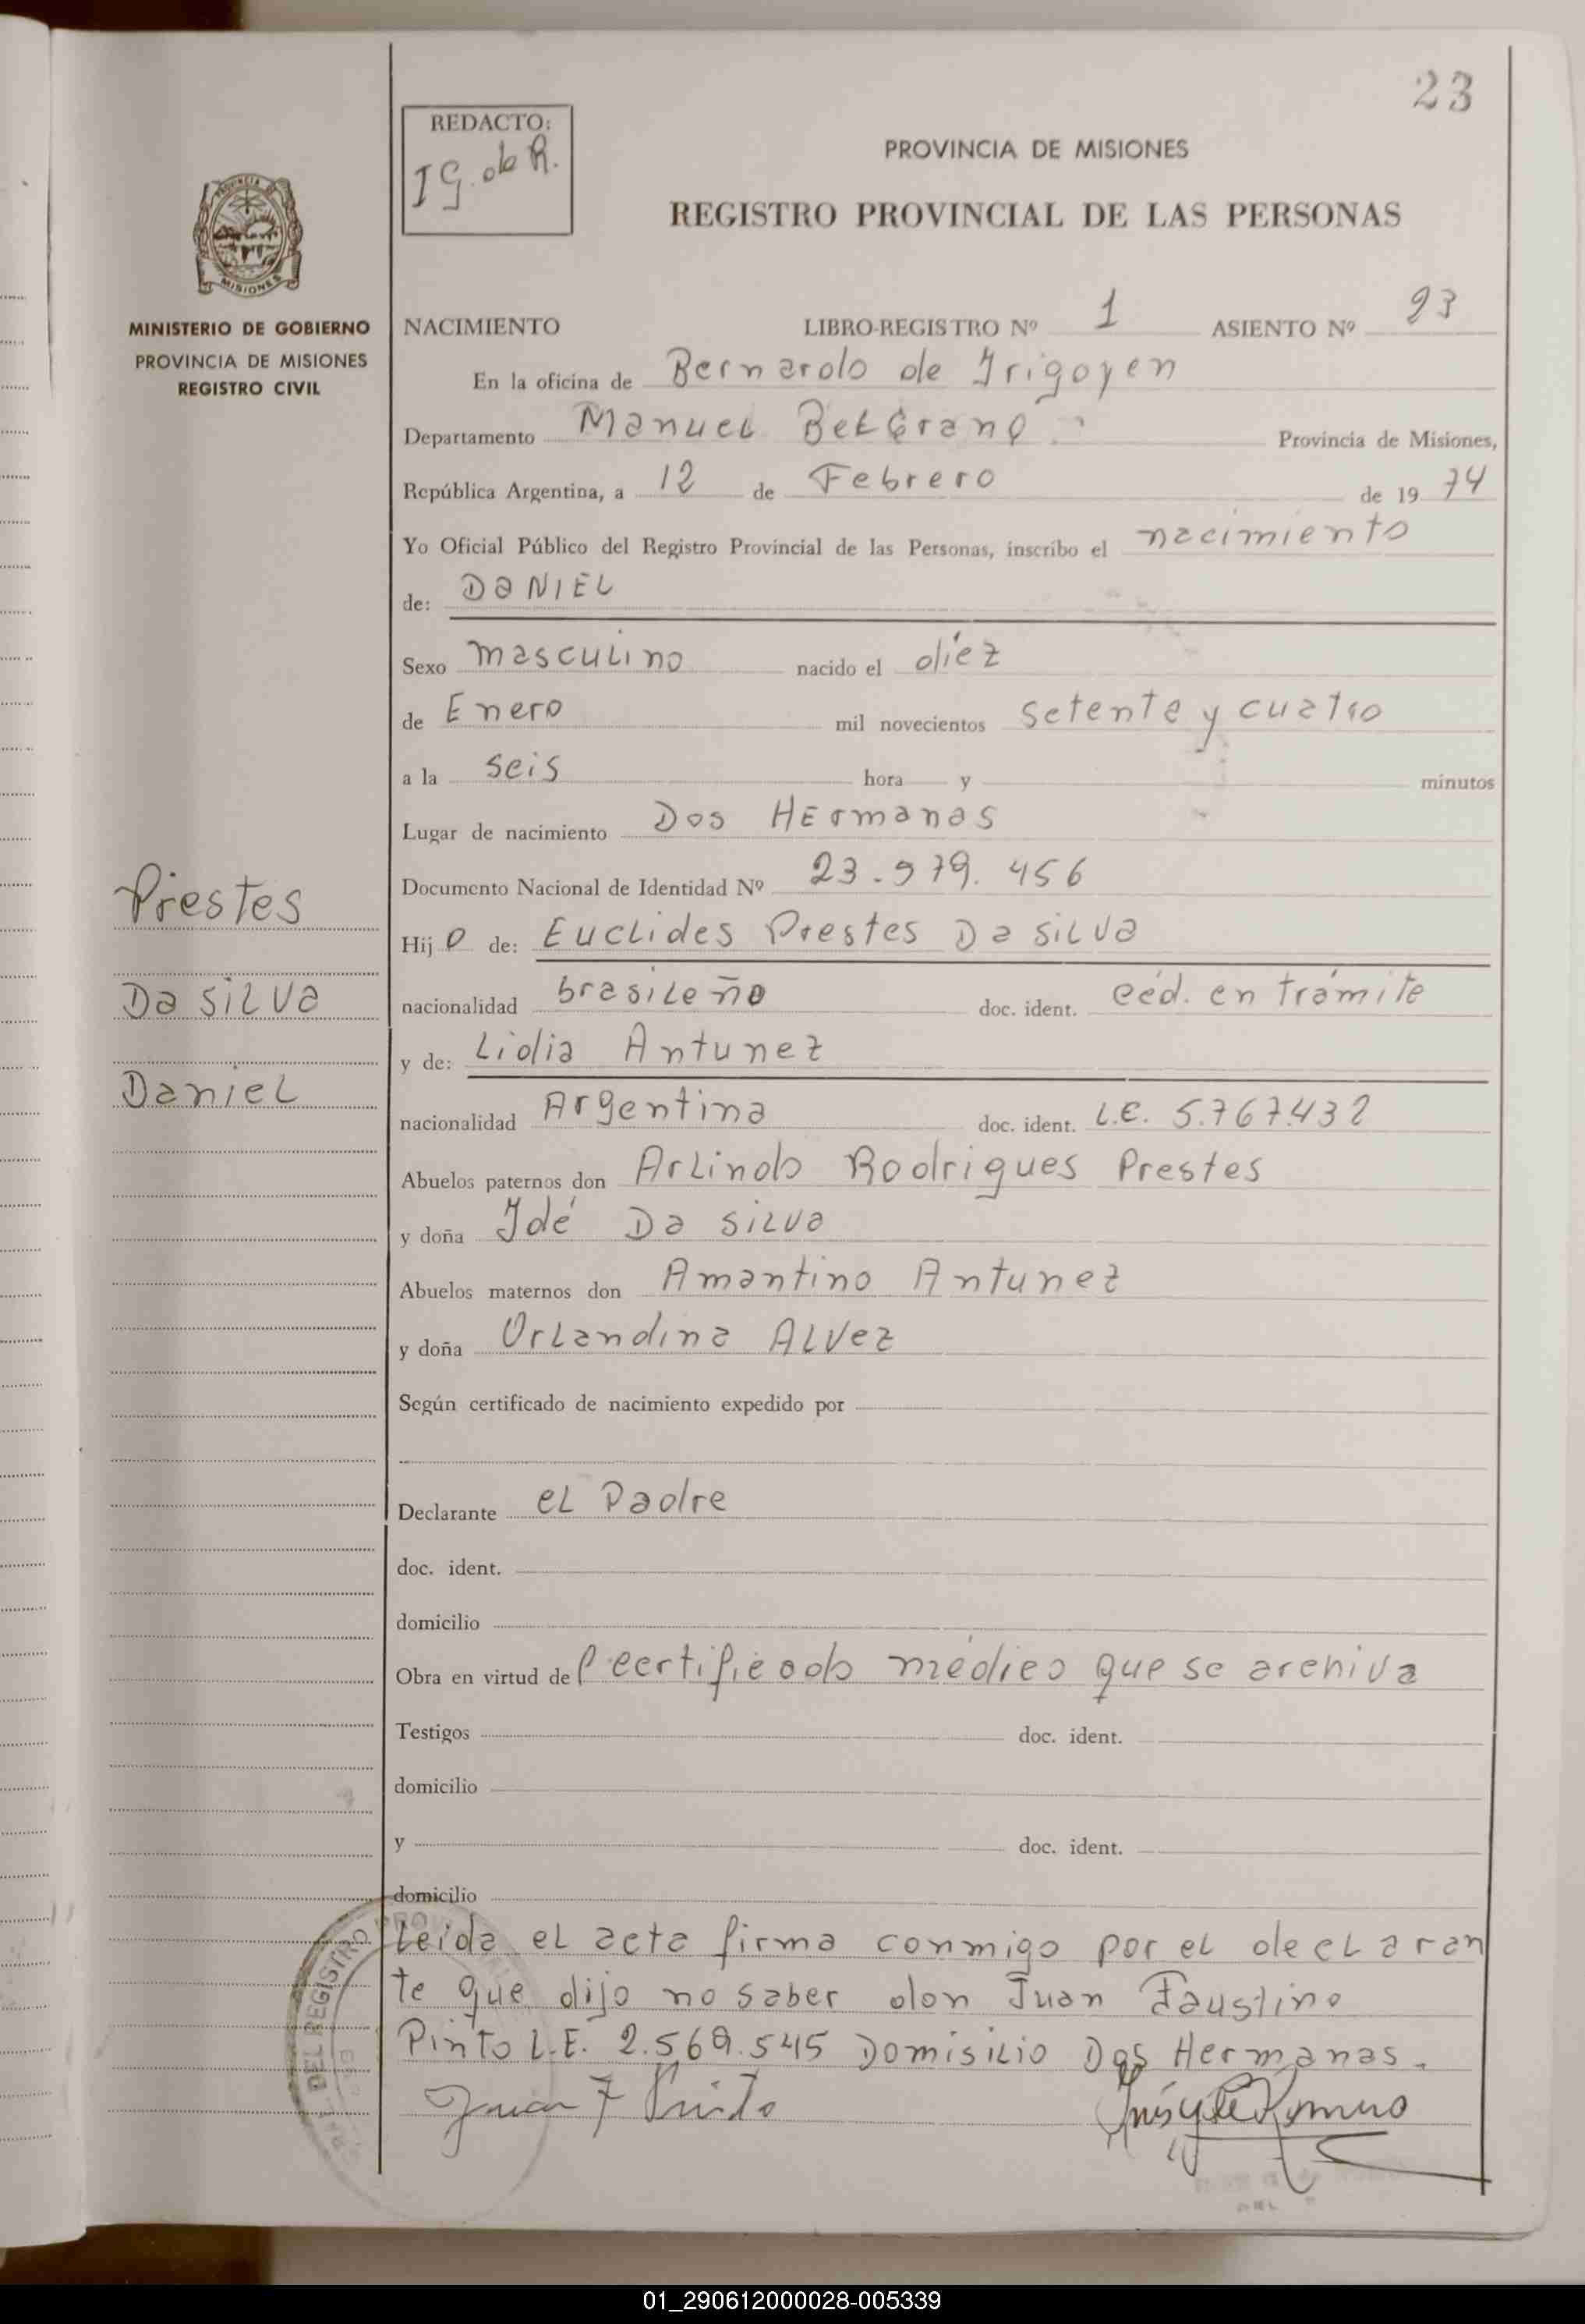 23
REDACTO:
I G. de R.
PROVINCIA DE MISIONES
REGISTRO PROVINCIAL DE LAS PERSONAS
MISIONES
MINISTERIO DE GOBIERNO
PROVINCIA DE MISIONES
REGISTRO CIVIL
NACIMIENTO LIBRO-REGISTRO Nº 1 ASIENTO Nº 23
En la oficina de Bernardo de Irigoyen
Departamento Manuel Belgrano Provincia de Misiones,
República Argentina, a 12 de Febrero de 19 74
Yo Oficial Público del Registro Provincial de las Personas, inscribo el nacimiento
de: DANIEL
Sexo masculino nacido el diez
de Enero mil novecientos setenta y cuatro
a la seis hora y minutos
Lugar de nacimiento Dos Hermanas
Documento Nacional de Identidad Nº 23.979.456
Prestes
Da Silva
Daniel
Hij o de: Euclides Prestes Da Silva
nacionalidad brasileño doc. ident. céd. en trámite
y de: Lidia Antunez
nacionalidad Argentina doc. ident. L.C. 5.767.432
Abuelos paternos don Arlindo Rodrigues Prestes
y doña Idé Da Silva
Abuelos maternos don Amantino Antunez
y doña Orlandina Alvez
Según certificado de nacimiento expedido por
Declarante el Padre
doc. ident.
domicilio
Obra en virtud de l certificado médico que se archiva
Testigos doc. ident.
domicilio
y doc. ident.
domicilio
Leida el acta firma conmigo por el declaran
te que dijo no saber don Juan Faustino
Pinto L.E. 2.569.545 Domisilio Dos Hermanas.
Juan F Pinto
DEL REGISTRO
01_290612000028-005339